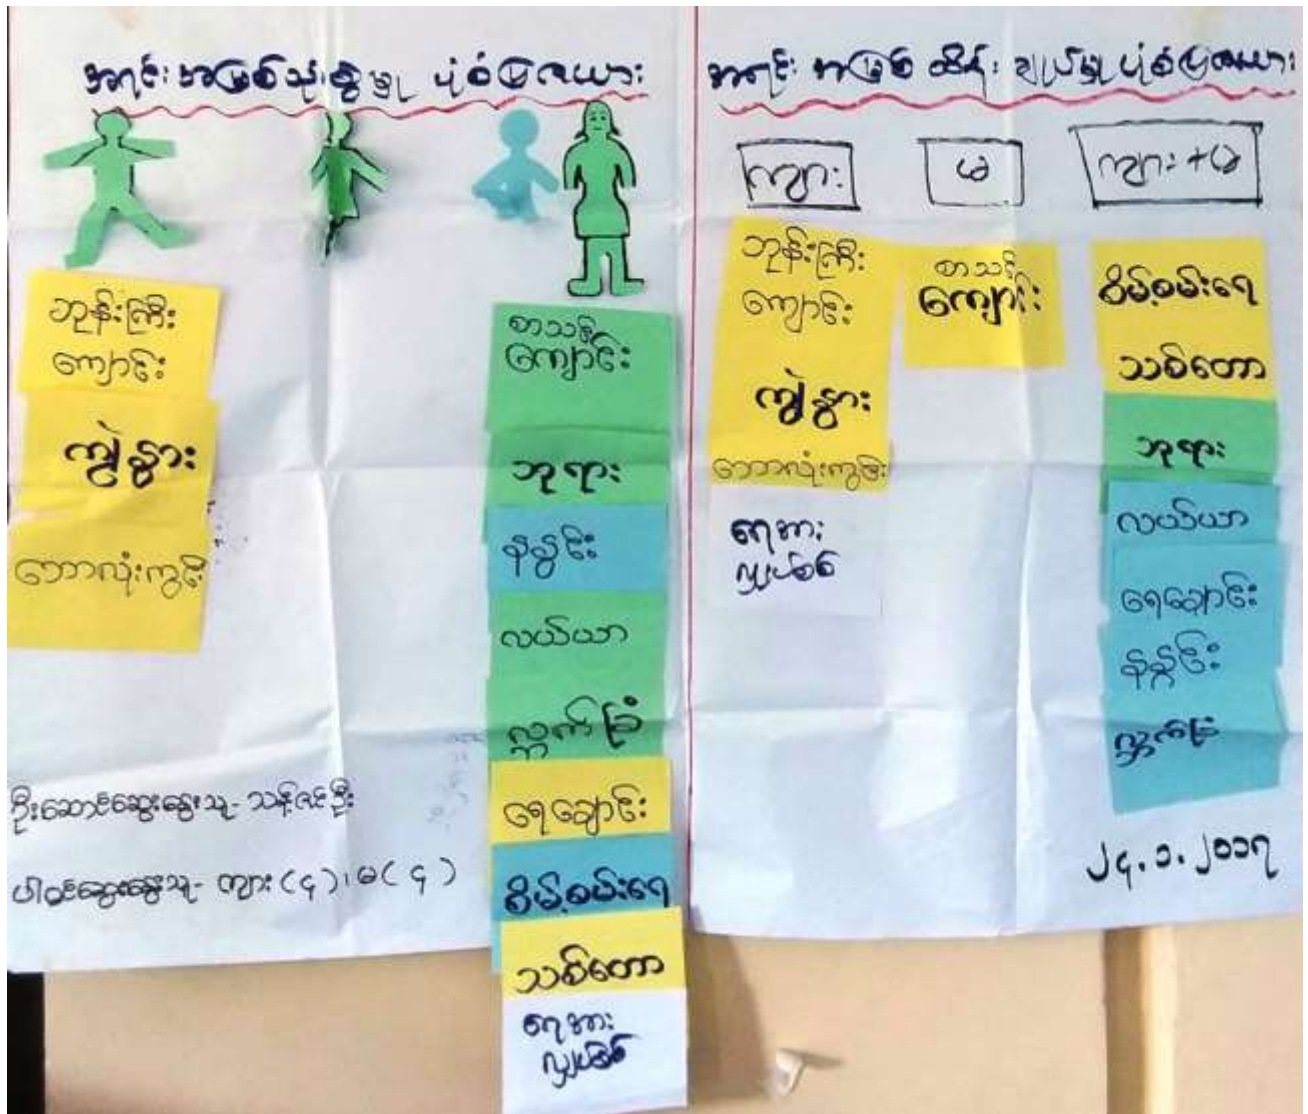 အရင်းအမြစ်သုံးစွဲမှု ပုံစံပြဇယား
ဘုန်းကြီး
ကျောင်း
ကျွဲနွား
ဘောလုံးကွင်း
စာသင်
ကျောင်း
ဘုရား
နနွင်း
လယ်ယာ
လ္ဘက်ခြံ
ရေချောင်း
စိမ့်စမ်းရေ
သစ်တော
ရေအား
လျှပ်စစ်
ဦးဆောင်ဆွေးနွေးသူ- သန့်ဇင်ဦး
ပါဝင်ဆွေးနွေးသူ- ကျား(၄)၊ မ(၄)
အရင်းအမြစ် ထိန်းချုပ်မှု ပုံစံပြဇယား
ကျား
မ
ကျား+မ
ဘုန်းကြီး
ကျောင်း
ကျွဲနွား
ဘောလုံးကွင်း
ရေအား
လျှပ်စစ်
စာသင်
ကျောင်း
စိမ့်စမ်းရေ
သစ်တော
ဘုရား
လယ်ယာ
ရေချောင်း
နနွင်း
လ္ဘက်ခြံ
၂၄.၁.၂၀၁၇